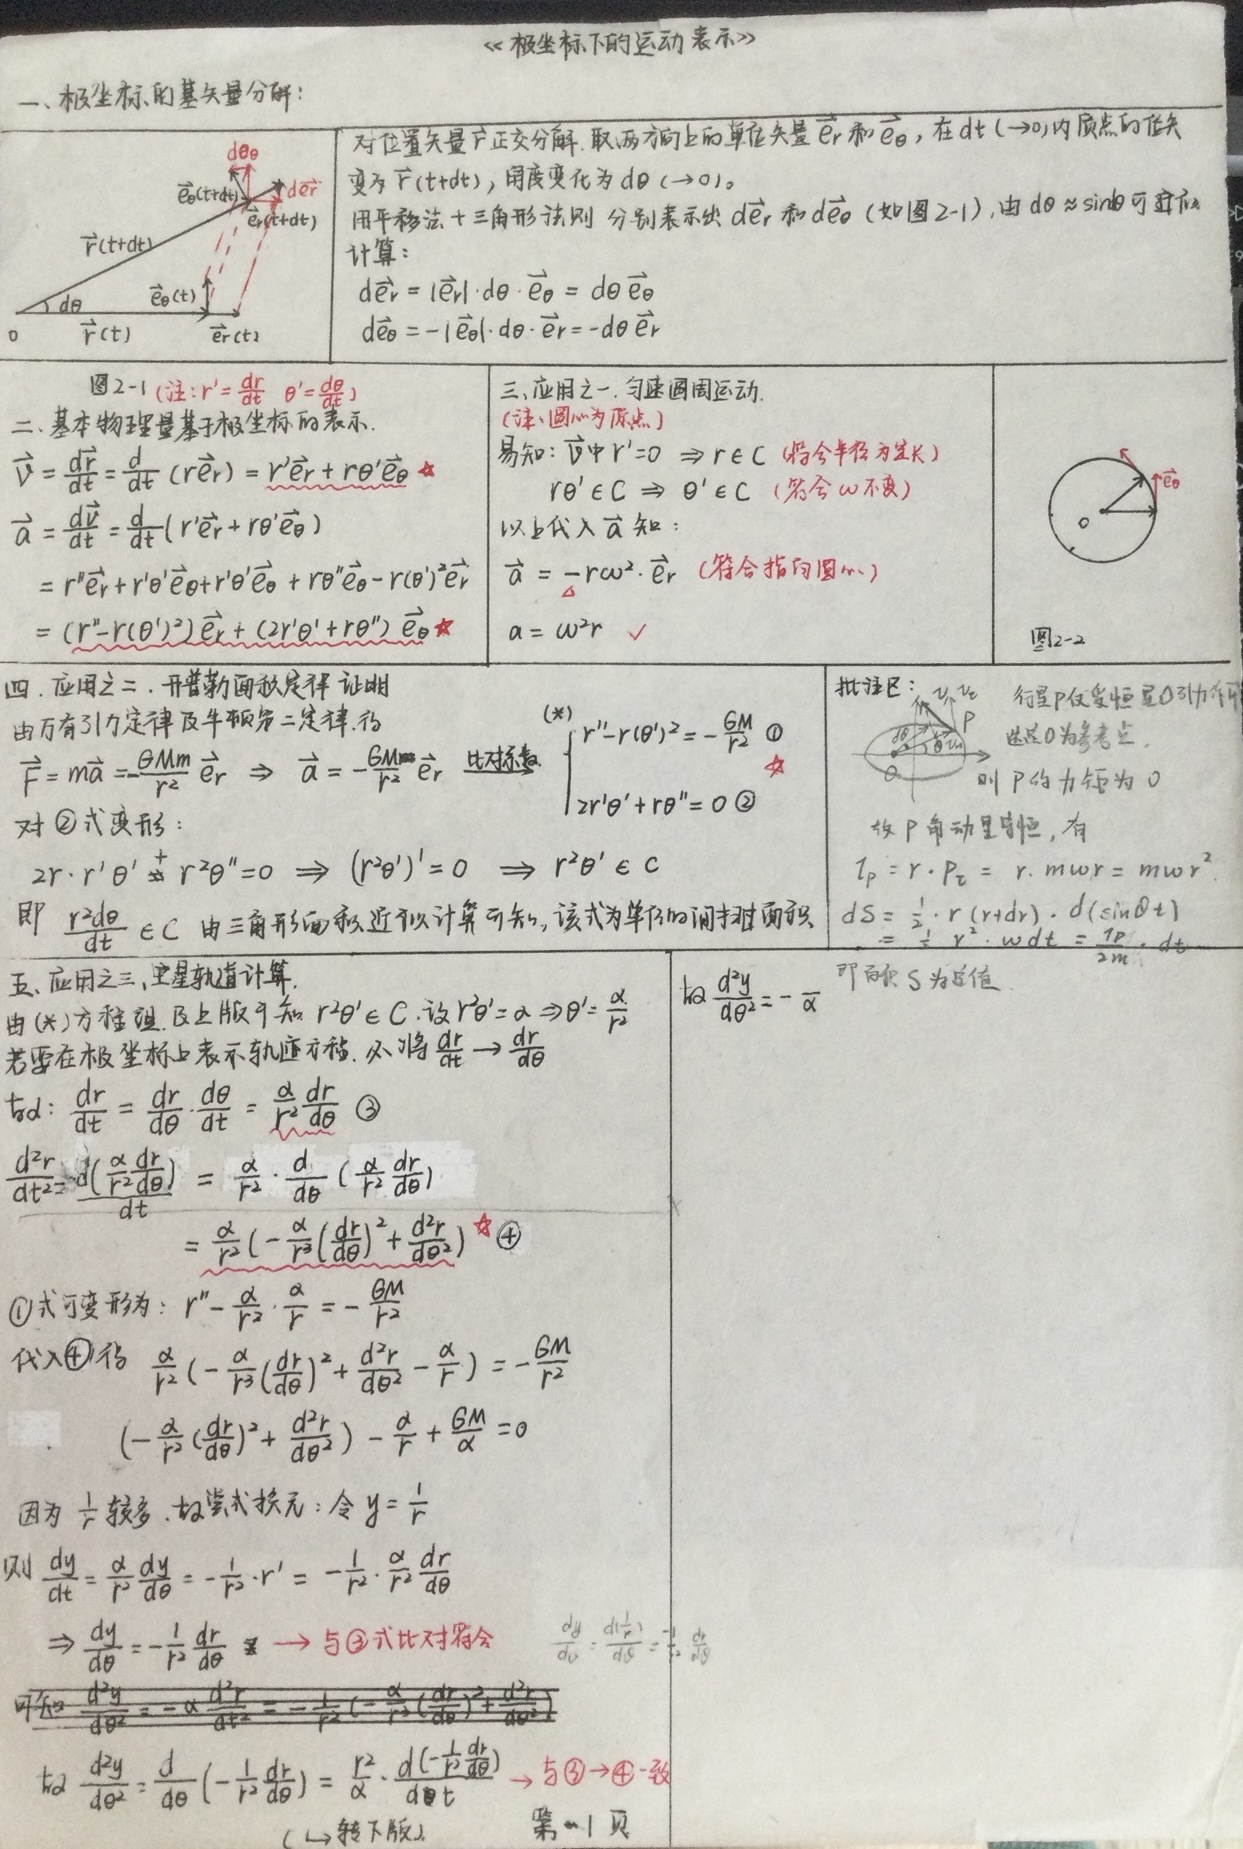 《极坐标下的运动表示》
一、极坐标的基矢量分解:
deθ
eθ(t+dt)
der
er(t+dt)
r(t+dt)
dθ
eθ(t)
O
r(t)
er(t)
对位置矢量r正交分解. 取两方向上的单位矢量er和eθ, 在dt(→0)内质点的位矢
变为r(t+dt), 角度变化为dθ(→0)。
用平移法+三角形法则 分别表示出der和deθ(如图2-1), 由dθ≈sinθ可近似
计算:
der = |er|·dθ·eθ = dθ eθ
deθ = -|eθ|·dθ·er = -dθ er
图2-1 (注: r' = dr/dt θ' = dθ/dt)
二、基本物理量基于极坐标的表示.
v = dr/dt = d/dt (r er) = r'er + rθ'eθ ☆
a = dv/dt = d/dt (r'er + rθ'eθ)
= r''er + r'θ'eθ + r'θ'eθ + rθ''eθ - r(θ')²er
= (r''-r(θ')²)er + (2r'θ'+rθ'')eθ ☆
三、应用之一. 匀速圆周运动.
(注、圆心为原点)
易知: v中 r'=0 ⇒ r∈C (符合半径为定长)
rθ'∈C ⇒ θ'∈C (符合ω不变)
以上代入a知:
a = -rω²·er (符合指向圆心)
△
a = ω²r ✓
eθ
O
图2-2
四. 应用之二. 开普勒面积定律证明
由万有引力定律及牛顿第二定律. 得
F = ma = -GMm/r² er ⇒ a = -GM/r² er 比对系数
(*) r''-r(θ')² = -GM/r² ①
☆
2r'θ'+rθ''=0 ②
对②式变形:
2r·r'θ' + r²θ''=0 ⇒ (r²θ')'=0 ⇒ r²θ'∈C
即 r²dθ/dt ∈C 由三角形面积近似计算可知, 该式为单位时间扫过面积
批注区:
P
O
行星P仅受恒星O引力作用
选O为参考点.
则P的力矩为0
故P角动量守恒, 有
lp = r·Pτ = r·mωr = mωr².
dS = 1/2·r(r+dr)·d(sinθt)
= 1/2 r²·ωdt = lp/2m·dt
即面积S为定值.
五. 应用之三、卫星轨道计算.
由(*)方程组. 及上版可知 r²θ'∈C. 设r²θ'=α ⇒ θ'=α/r²
若要在极坐标上表示轨迹方程. 必将dr/dt → dr/dθ
故: dr/dt = dr/dθ·dθ/dt = α/r² dr/dθ ③
d²r/dt² = d(α/r² dr/dθ)/dt = α/r²·d/dθ(α/r² dr/dθ)
= α/r²(-α/r³(dr/dθ)²+d²r/dθ²) ☆ ④
①式可变形为: r''-α/r²·α/r = -GM/r²
代入④得 α/r²(-α/r³(dr/dθ)²+d²r/dθ²-α/r) = -GM/r²
(-α/r²(dr/dθ)²+d²r/dθ²)-α/r+GM/α=0
因为1/r较多. 故尝试换元: 令y=1/r
则 dy/dt = α/r² dy/dθ = -1/r²·r' = -1/r²·α/r² dr/dθ
⇒ dy/dθ = -1/r² dr/dθ → 与③式比对符合
dy/dθ = d(1/r)/dθ = -1/r²·dr/dθ
可知 d²y/dθ² = -α d²r/dt² = -1/r²(-α/r³(dr/dθ)²+d²r/dθ²)
故 d²y/dθ² = d/dθ(-1/r² dr/dθ) = r²/α·d(-1/r² dr/dθ)/dt → 与③→④一致
(↳转下版)
第~1页
故 d²y/dθ² = -  /α